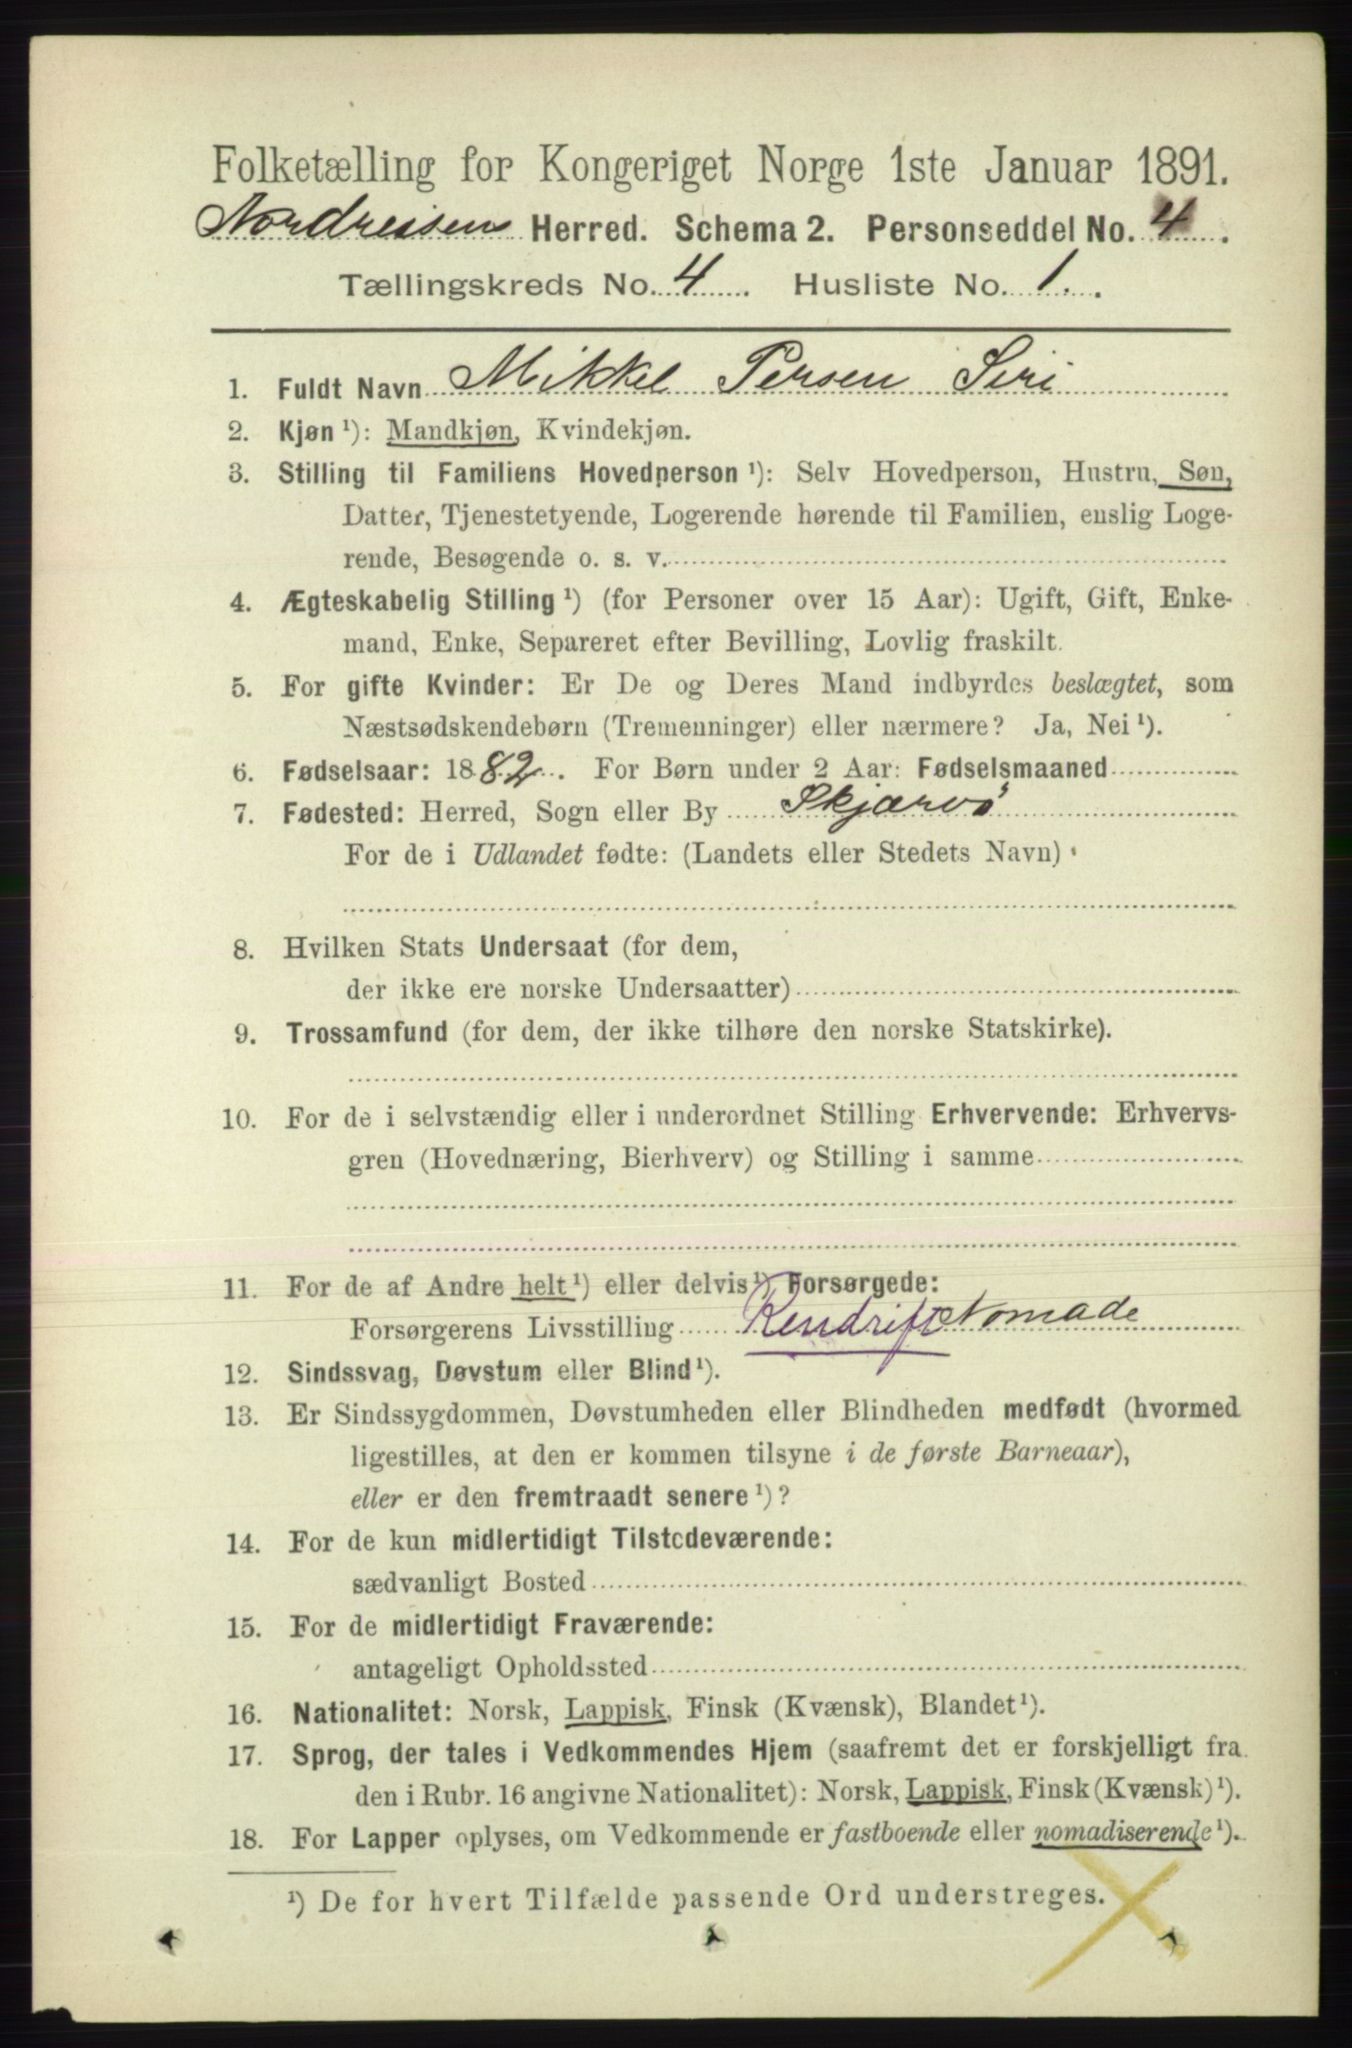 Folketælling for Kongeriget Norge 1ste Januar 1891.
Nordreisens Herred. Schema 2. Personseddel No. 4.
Tællingskreds No. 4. Husliste No. 1.
1. Fuldt Navn Mikkel Persen Siri
2. Kjøn ¹): Mandkjøn, Kvindekjøn.
3. Stilling til Familiens Hovedperson ¹): Selv Hovedperson, Hustru, Søn,
Datter, Tjenestetyende, Logerende hørende til Familien, enslig Loge-
rende, Besøgende o. s. v.
4. Ægteskabelig Stilling ¹) (for Personer over 15 Aar): Ugift, Gift, Enke-
mand, Enke, Separeret efter Bevilling, Lovlig fraskilt.
5. For gifte Kvinder: Er De og Deres Mand indbyrdes beslægtet, som
Næstsødskendebørn (Tremenninger) eller nærmere? Ja, Nei ¹).
6. Fødselsaar: 1882. For Børn under 2 Aar: Fødselsmaaned
7. Fødested: Herred, Sogn eller By Skjærvø
For de i Udlandet fødte: (Landets eller Stedets Navn)
8. Hvilken Stats Undersaat (for dem,
der ikke ere norske Undersaatter)
9. Trossamfund (for dem, der ikke tilhøre den norske Statskirke).
10. For de i selvstændig eller i underordnet Stilling Erhvervende: Erhvervs-
gren (Hovednæring, Bierhverv) og Stilling i samme
11. For de af Andre helt ¹) eller delvis ¹) Forsørgede:
Forsørgerens Livsstilling Rendrift Nomade
12. Sindssvag, Døvstum eller Blind ¹).
13. Er Sindssygdommen, Døvstumheden eller Blindheden medfødt (hvormed
ligestilles, at den er kommen tilsyne i de første Barneaar),
eller er den fremtraadt senere ¹)?
14. For de kun midlertidigt Tilstedeværende:
sædvanligt Bosted
15. For de midlertidigt Fraværende:
antageligt Opholdssted
16. Nationalitet: Norsk, Lappisk, Finsk (Kvænsk), Blandet ¹).
17. Sprog, der tales i Vedkommendes Hjem (saafremt det er forskjelligt fra
den i Rubr. 16 angivne Nationalitet): Norsk, Lappisk, Finsk (Kvænsk) ¹).
18. For Lapper oplyses, om Vedkommende er fastboende eller nomadiserende ¹).
¹) De for hvert Tilfælde passende Ord understreges.